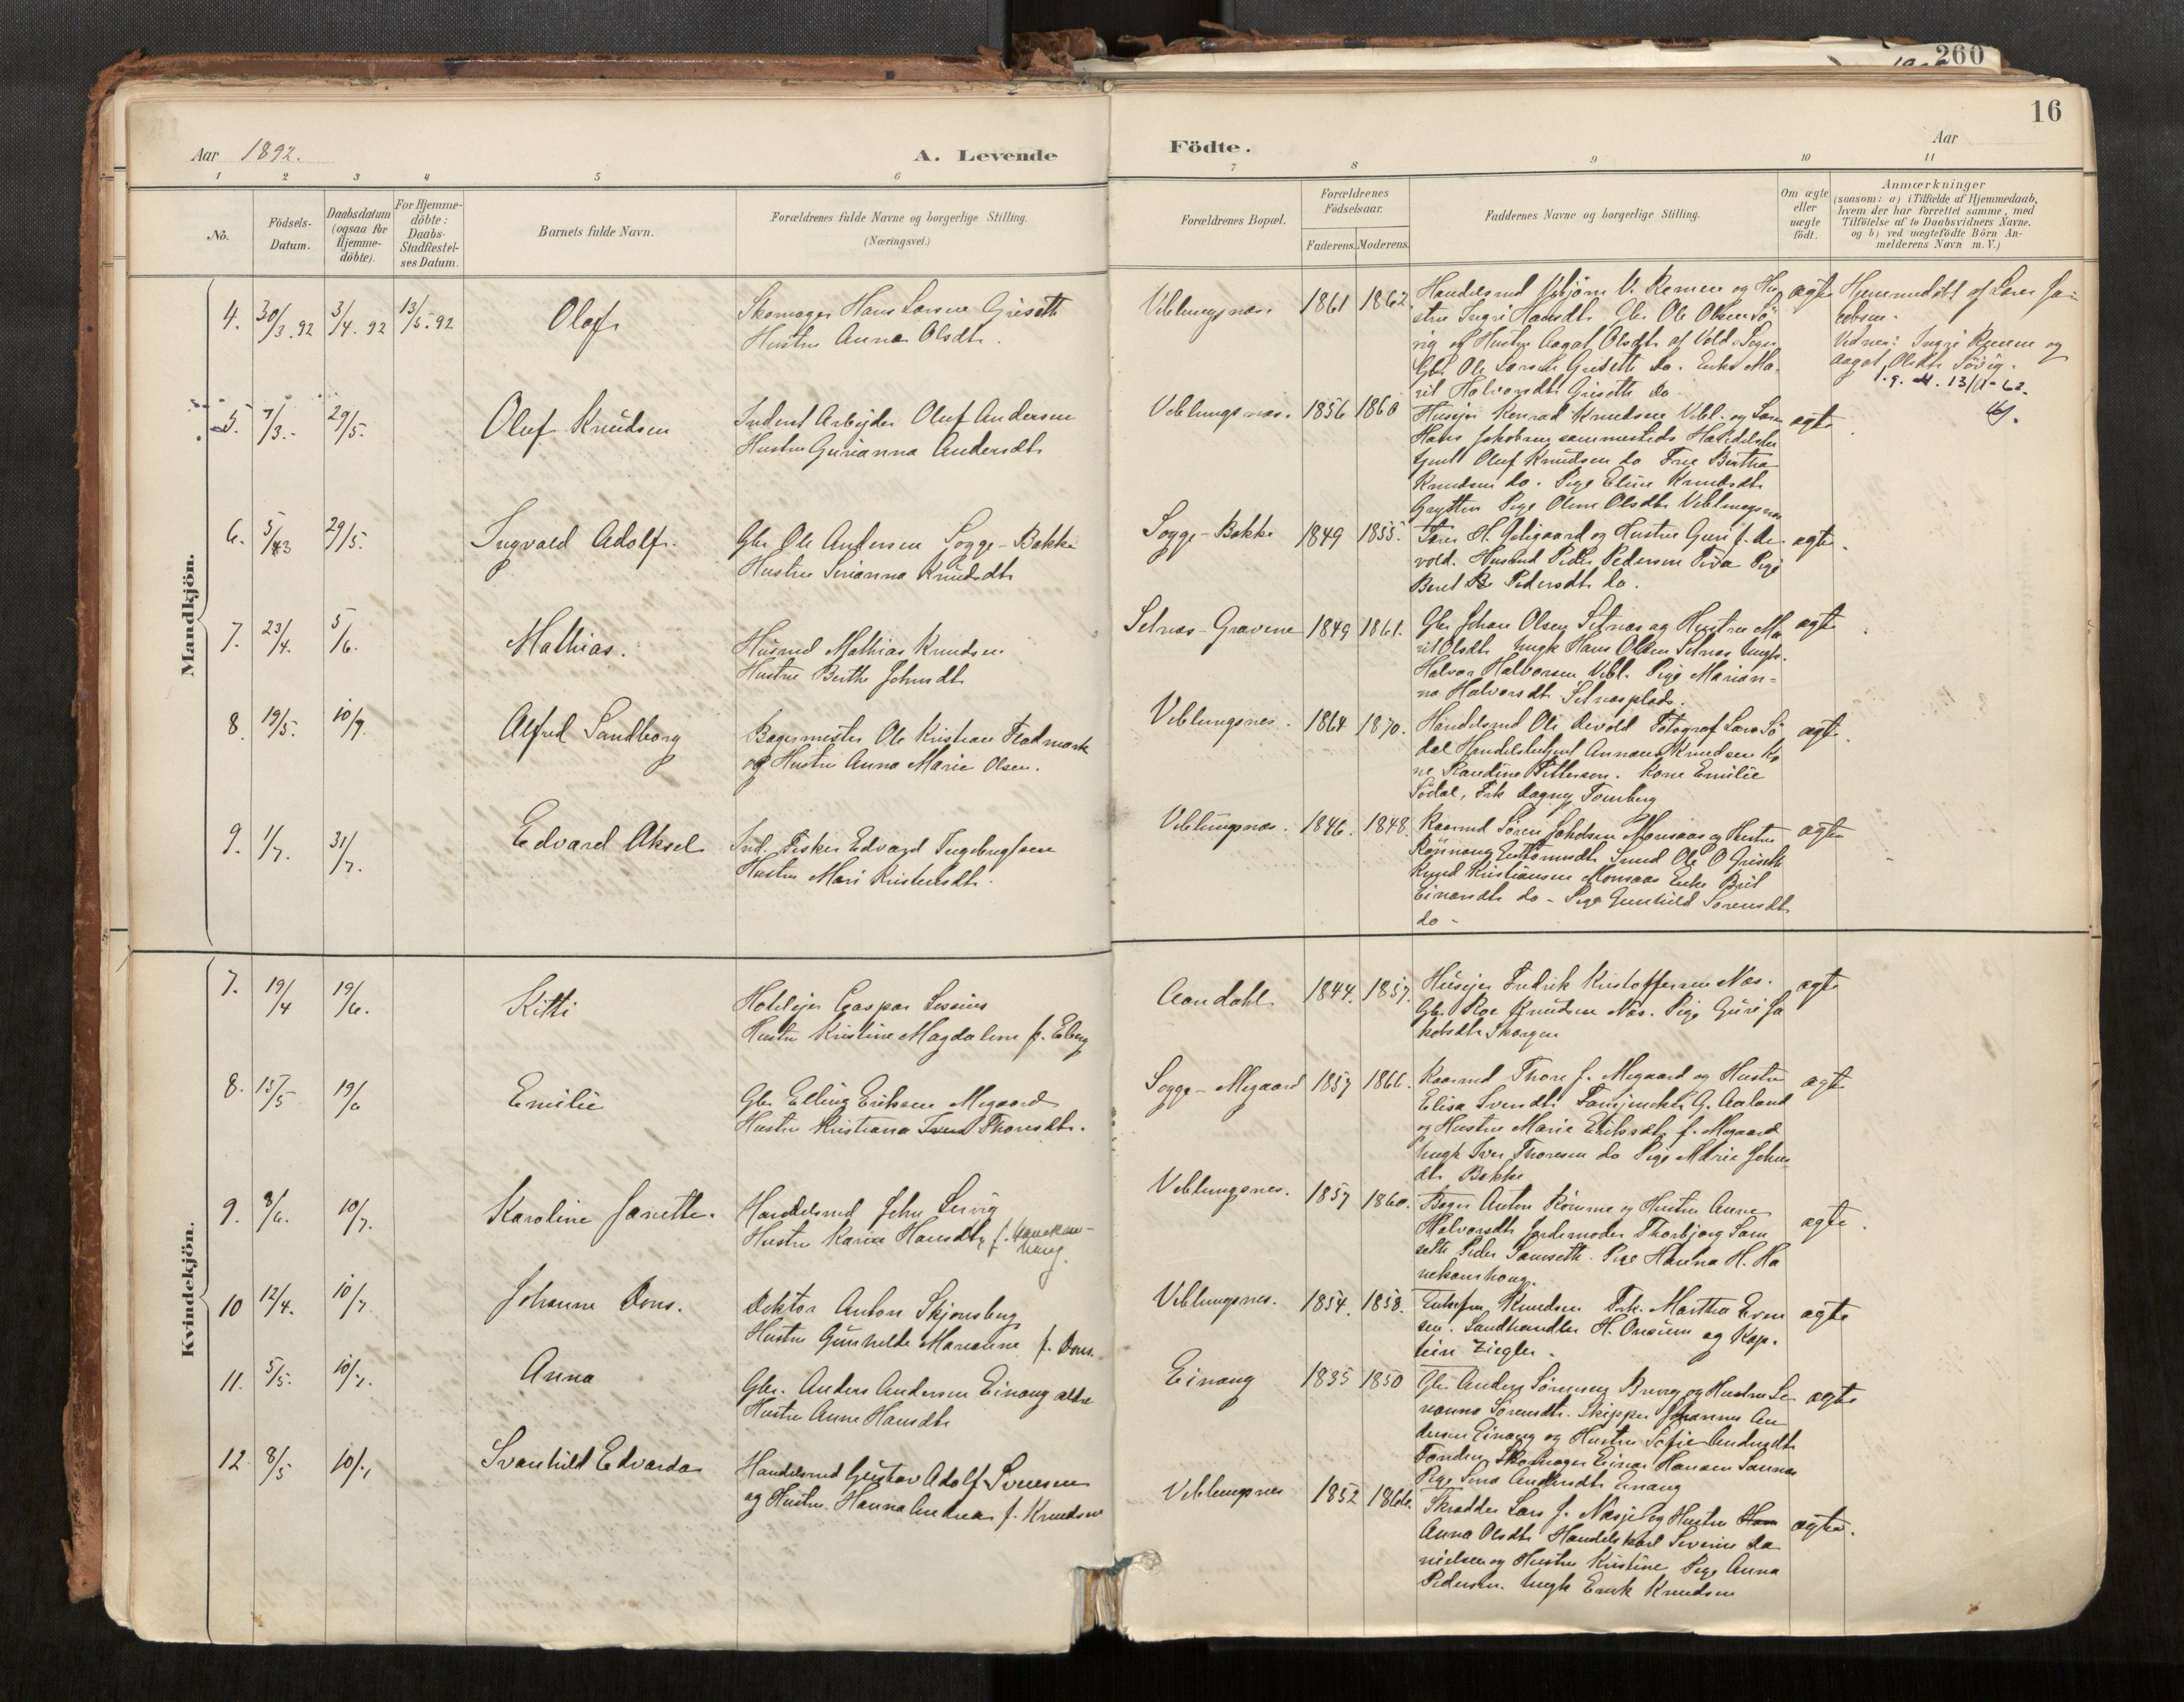 260
16
Aar 1892.
A. Levende
Födte.
Aar
1 2 3 4 5 6
7 8 9 10 11
Nô.
Födsels-Datum.
Daabsdatum (ogsaa for Hjemme-döbte).
For Hjemme-döbte: Daabs-Stadfæstel-ses Datum.
Barnets fulde Navn.
Forældrenes fulde Navne og borgerlige Stilling.
(Næringsvei.)
Forældrenes Bopæl.
Forældrenes Födselsaar.
Faderens. Moderens.
Faddernes Navne og borgerlige Stilling.
Om ægte eller uægte födt.
Anmærkninger
(saasom: a) i Tilfælde af Hjemmedaab,
hvem der har forrettet samme, med
Tilföielse af to Daabsvidners Navne,
og b) ved uægtefödte Börn An-
melderens Navn m. V.)
Mandkjön.
4. 30/3.92 3/4.92 13/5.92 Olaf
Skomager Hans Larsen Griseth
Hustru Anna Olsdtr.
Veblungsnæs. 1861 1862.
Handelsmd V. Romen og Hu
stru Ingri Hansdtr. Gbr Ole Olsen Sö
vig og Hustru Aagot Olsdtr
Gbr Ole Larsen Griseth do. Enke Ma
rit Halvorsdtr Griseth do
ægte
Hjemmedöbt af Lærer Ja
cobsen.
Vidner: Ingri og
Aagot Olsdtr Sövig.
5. 7/3.- 29/5. Oluf Knudsen
Inderst Arbejder Oluf Andersen
Hustru Gurianna Andersdtr
Veblungsnæs. 1856 1860
Husejer Konrad Knudsen Vebl. og
Hans Jakobsen sammesteds
Oluf Knudsen do Frue Bertha
Knudsen do. Pige Eline Knudsdtr
Grytten Pige Oline Olsdtr Veblungsnæs
ægte
6. 29/5. Ingvald Adolf.
Gbr Ole Andersen Sogge-Bakke
Hustru Serianna Knudsdtr
Sogge-Bakke 1849 1855.
H. og Hustru Guri f. De
vold. Husmd Peder Pedersen Pige
Beret Pedersdtr do.
ægte.
7. 23/4. 5/6. Mathias.
Husmd Mathias Knudsen
Hustru Berthe Johnsdtr
Setnæs-Gravene 1849 1861.
Gbr Johan Olsen Setnæs og Hustru Ma
rit Olsdtr Ungk Hans Olsen Setnæs Ungk.
Halvor Halvorsen Vebl. Pige Marian-
na Halvorsdtr Setnæsplads.
ægte
8. 19/5. 10/7. Alfred Sandborg
Bagermester Ole Kristian Fladmark
og Hustru Anna Marie Olsen.
Veblungsnes. 1864 1870.
Handelsmd Ole Devold Fotograf Lars Sö
dal Knudsen Ko
ne Randine Pettersen. Kone Emilie
Södal, Frk Dagny Tomberg
ægte.
9. 1/7. 31/7. Edvard Aksel
Ind. Fisker Edvard Ingebrigtsen
Hustru Mari Kristensdtr.
Veblungsnæs. 1846. 1848.
Kaarmd Sören Monsaas og Hustru
Ole O Griseth
Knud Kristiansen Monsaas Enke Brit
Einarsdtr do - Pige Gunhild Sorensdtr
do -
ægte
Kvindekjön.
7. 19/4 19/6. Kitti
Hotelejer Caspar Lossius
Hustru Kristine Magdalene f. Eberg
Aandahl 1844. 1857.
Husejer Fredrik Kristoffersen Næs.
Gbr Roe Knudsen Næs. Pige Guri Ja
kobsdtr Skorgen
ægte
8. 15/5 19/6 Emilie
Gbr Elling Eriksen Megaard
Hustru Kristiana Thoresdtr.
Sogge-Megaard 1857 1866.
Kaarmd Thore J. Megaard og Hustru
Elisa Svendtr G. Aaland
og Hustru Marie Eriksdtr f. Megaard
Ungk Iver Thoresen do Pige Marie Johns
dtr Bakke
ægte
9. 8/6. 10/7. Karoline Janette.
Handelsmd John Servig
Hustru Karen Hansdtr f. Hanekam-
haug.
Veblungsnes. 1857 1860.
Bager Anton Romme og Hustru Anne
Halvorsdtr Jordemoder Thorbjorg Sam
seth Peder Samseth. Pige Hanna H. Ha
nekamhaug.
ægte.
10 12/4. 10/7 Johanne Dons.
Doktor Anton Skjonsberg
Hustru Gunhilde Marianne f. Dons.
Veblungsnes. 1854. 1858.
Enkefru Knudsen Frk. Martha Even
sen. Landhandler H. Onsum og Kap.
tein Ziegler.
ægte
11. 5/5. 10/7. Anna
Gbr. Anders Andersen Einang ældre
Hustru Anne Hansdtr
Einang 1835 1850
Gbr Anders Sörensen og Hustru Se
rianna Sorensdtr. Skipper Johannes An
dersen Einang og Hustru Sofie Andersdtr
Skomager Einar Hansen
Pige Sina Andersdtr Einang
ægte
12 8/5 10/7 Svanhild Edvarda
Handelsmd Gustav Adolf Svensen
og Hustru Hanna Andrea f. Knudsen
Veblungsnes 1852 1866.
Skrædder Lars J. Næsje og Hustru
Anna Olsdtr Handelskarl Severin Da
nielsen og Hustru Kristine Pige Anna
Pedersen. Ungk Enok Knudsen
ægte.